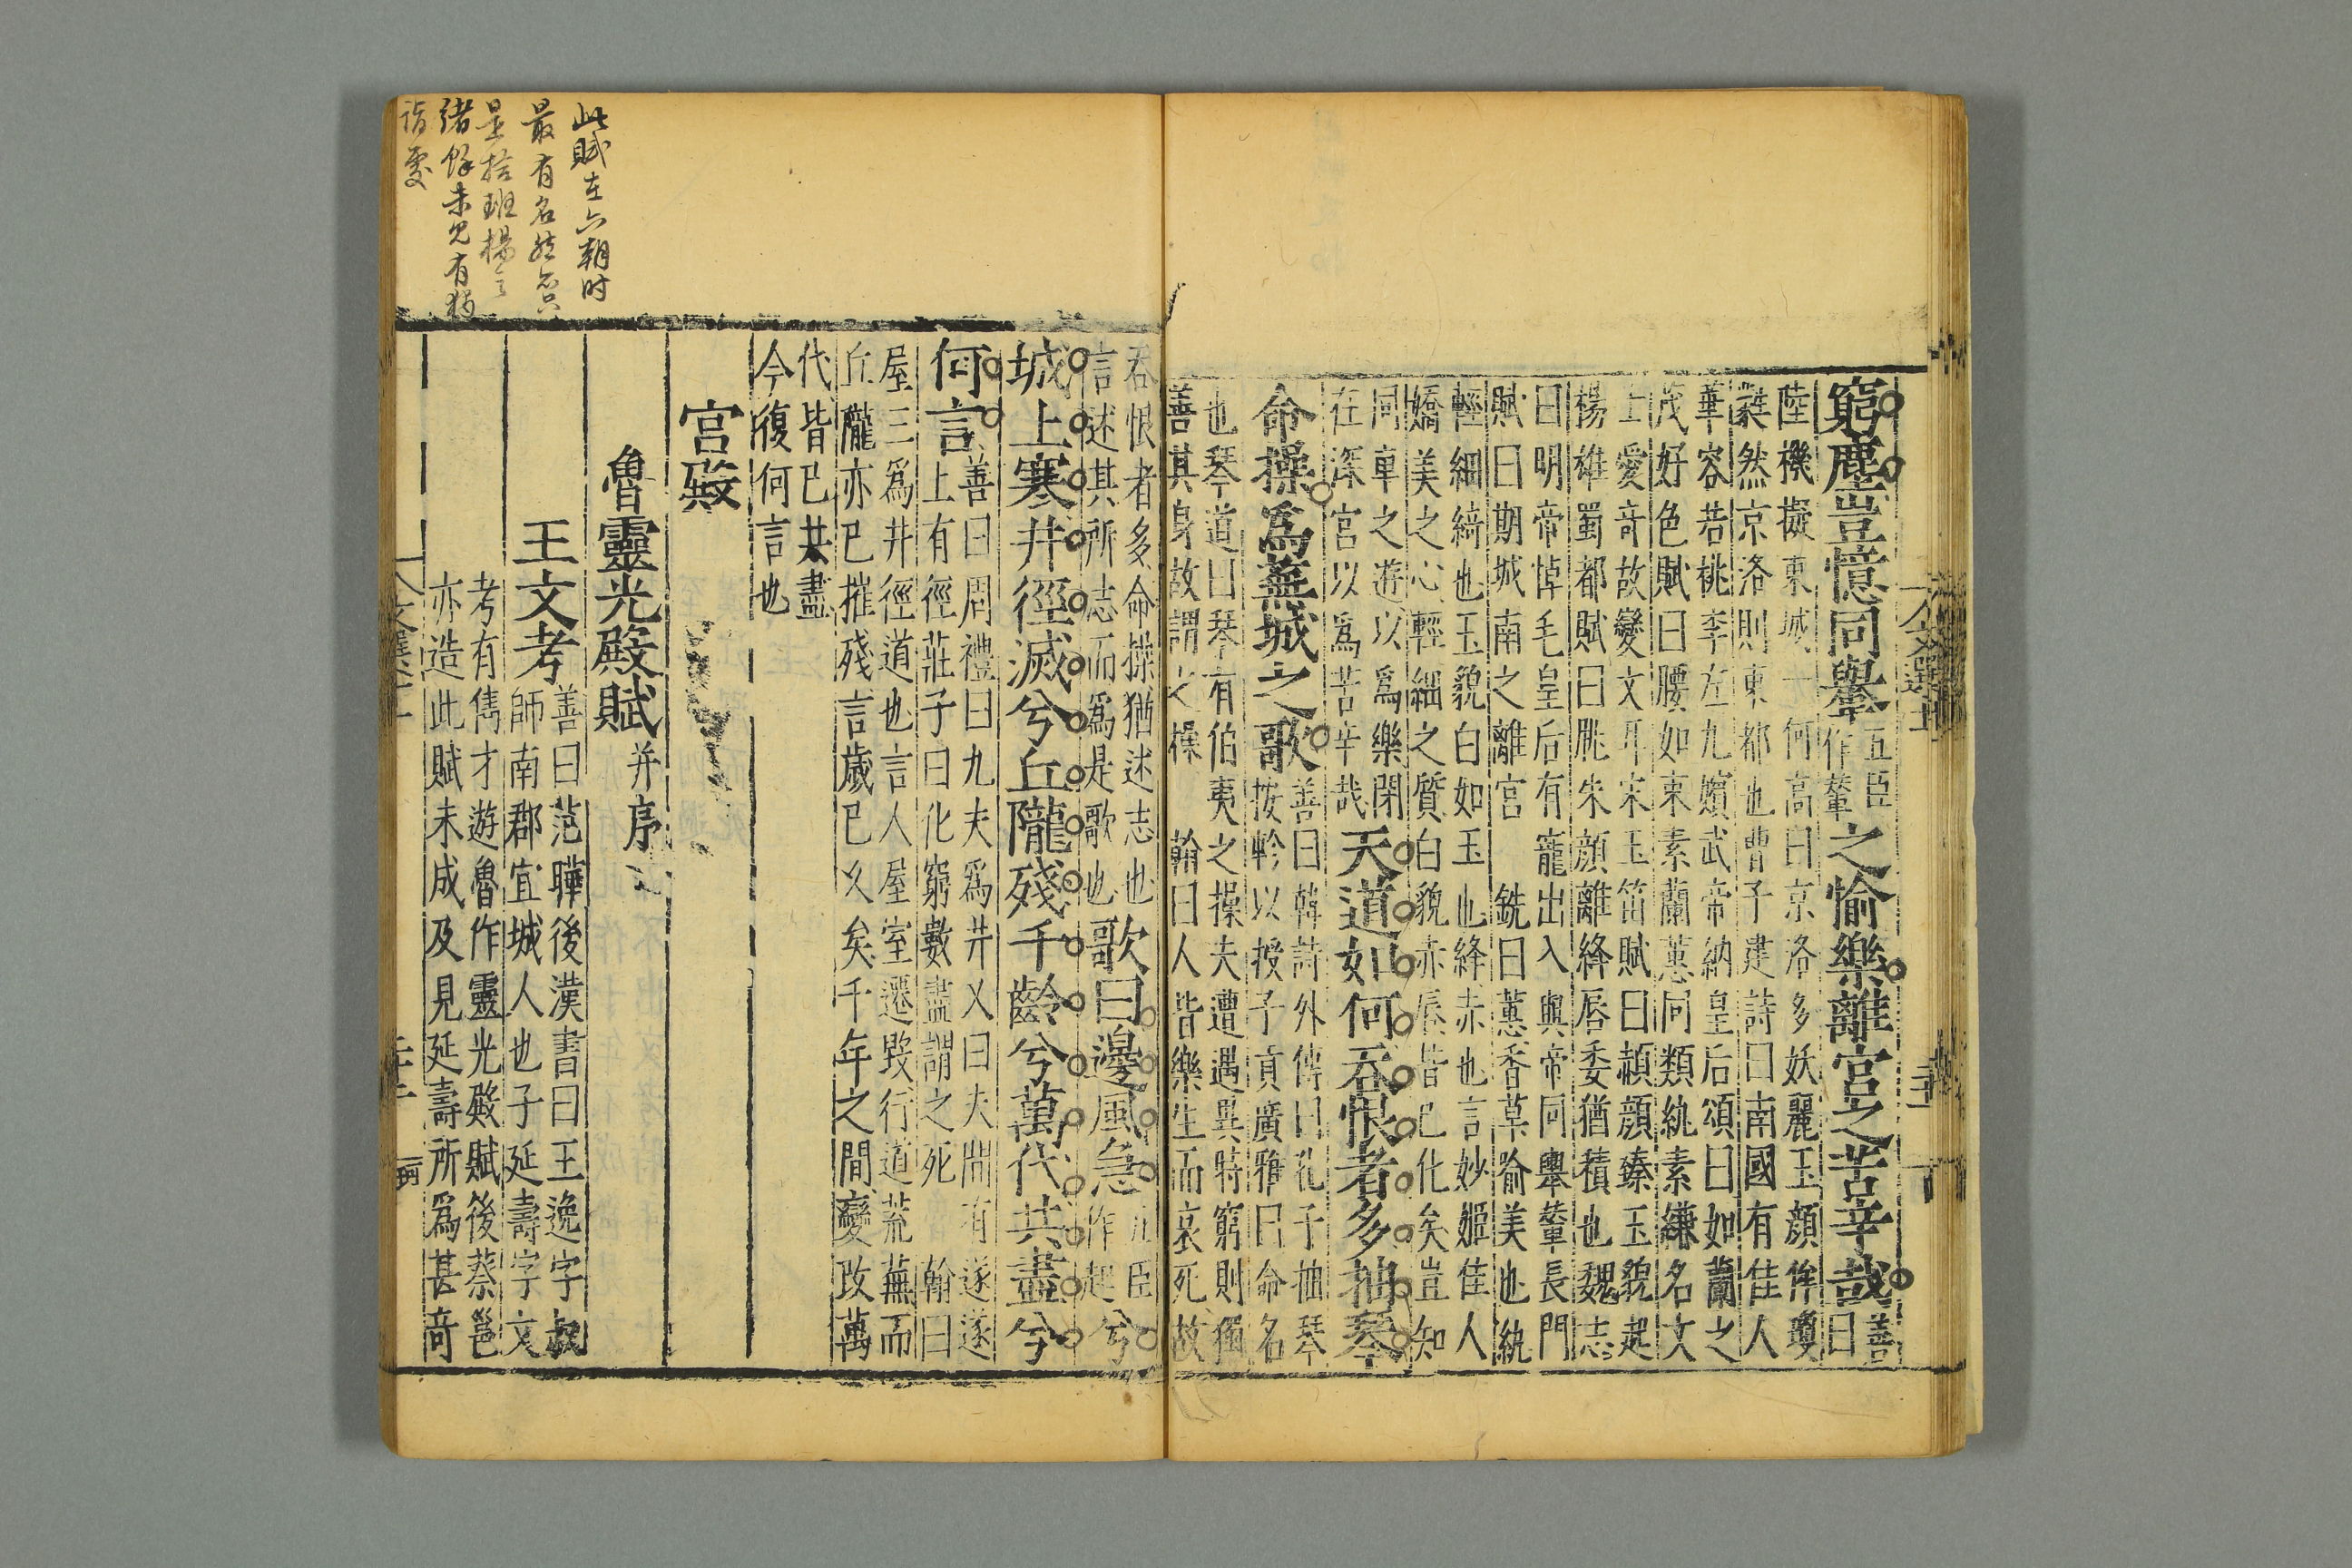 窮塵豈憶同轝五臣作輦之愉樂離宮之苦辛哉善曰
陸機擬東城一何高曰京洛多妖麗玉顔侔瓊
蕤然京洛則東都也曹子建詩曰南國有佳人
華容若桃李左九嬪武帝納皇后頌曰如蘭之
茂好色賦曰腰如束素蘭蕙同類紈素縑名文
士愛竒故變文耳宋玉笛賦曰頳顔臻玉貌起
楊雄蜀都賦曰眺朱顔離絳唇委猶積也魏志
曰明帝悼毛皇后有寵出入與帝同轝輦長門
賦曰期城南之離宮 銑曰蕙香草喻美也紈
輕細綺也玉貌白如玉也絳赤也言妙姬佳人
嬌美之心輕細之質白貌赤唇皆已化矣豈知
同車之遊以爲樂閑
在深宮以爲苦辛哉天道如何吞恨者多抽琴
命操爲蕪城之歌善曰韓詩外傳曰孔子抽琴
按軫以授子貢廣雅曰命名
也琴道曰琴有伯夷之操夫遭遇異時窮則獨
善其身故謂之操 翰曰人皆樂生而哀死故
吞恨者多命操猶述志也
言述其所志而爲是歌也歌曰邊風急五臣作起兮
城上寒井徑滅兮丘隴殘千齡兮萬代共盡兮
何言善曰周禮曰九夫爲井又曰夫間有遂遂
上有徑莊子曰化窮數盡謂之死 翰曰
屋三爲井徑道也言人屋室遷毀行道荒蕪而
丘隴亦已摧殘言歲已久矣千年之間變改萬
代皆已共盡
今復何言也
宮殿
魯靈光殿賦并序
王文考善曰范曄後漢書曰王逸字叔
師南郡宜城人也子延壽字文
考有雋才遊魯作靈光殿賦後蔡邕
亦造此賦未成及見延壽所爲甚竒
此賦在六朝时
最有名然只
是拾班楊之
緒餘未見有獨
詣處